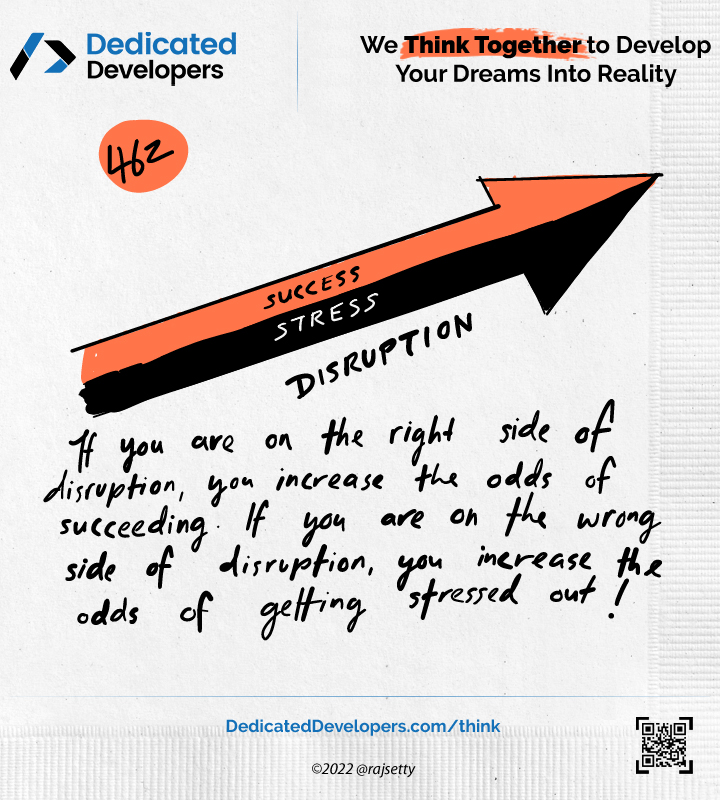 Dedicated
Developers
We Think Together to Develop
Your Dreams Into Reality
462
SUCCESS
STRESS
DISRUPTION
If you are on the right side of
disruption, you increase the odds of
succeeding. If you are on the wrong
side of disruption, you increase the
odds of getting stressed out!
DedicatedDevelopers.com/think
©2022 @rajsetty